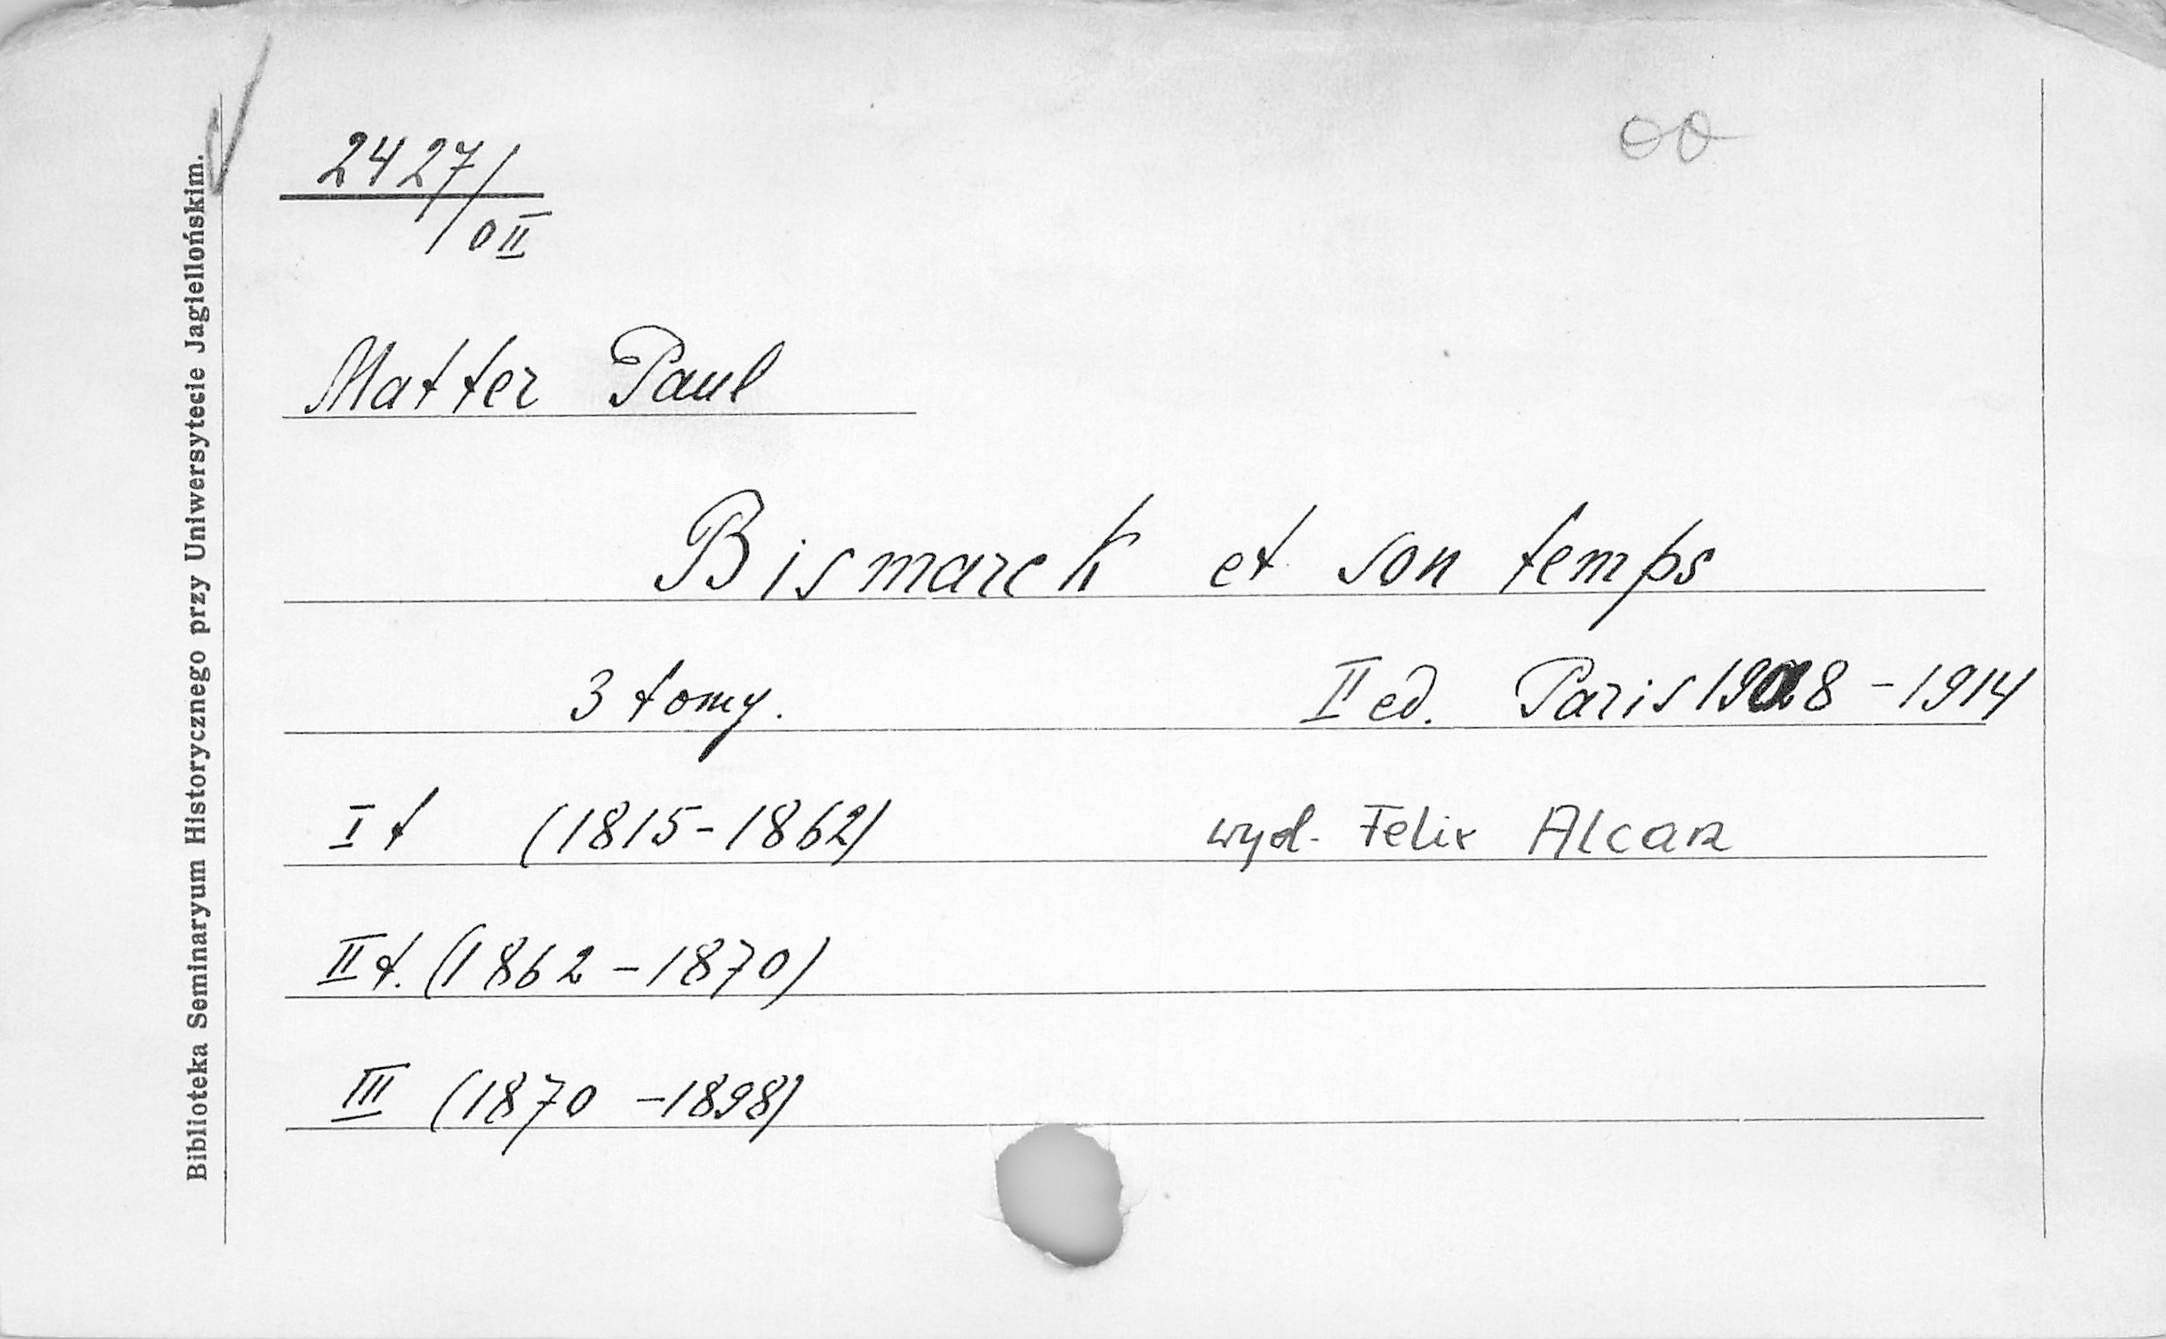 2427/
0II
oo
Matter Paul
Bismarck et son temps
3 tomy. II ed. Paris 1908-1914
I t (1815-1862) wyd. Felix Alcan
II t. (1862-1870)
III (1870-1898)
Biblioteka Seminaryum Historycznego przy Uniwersytecie Jagiellońskim.